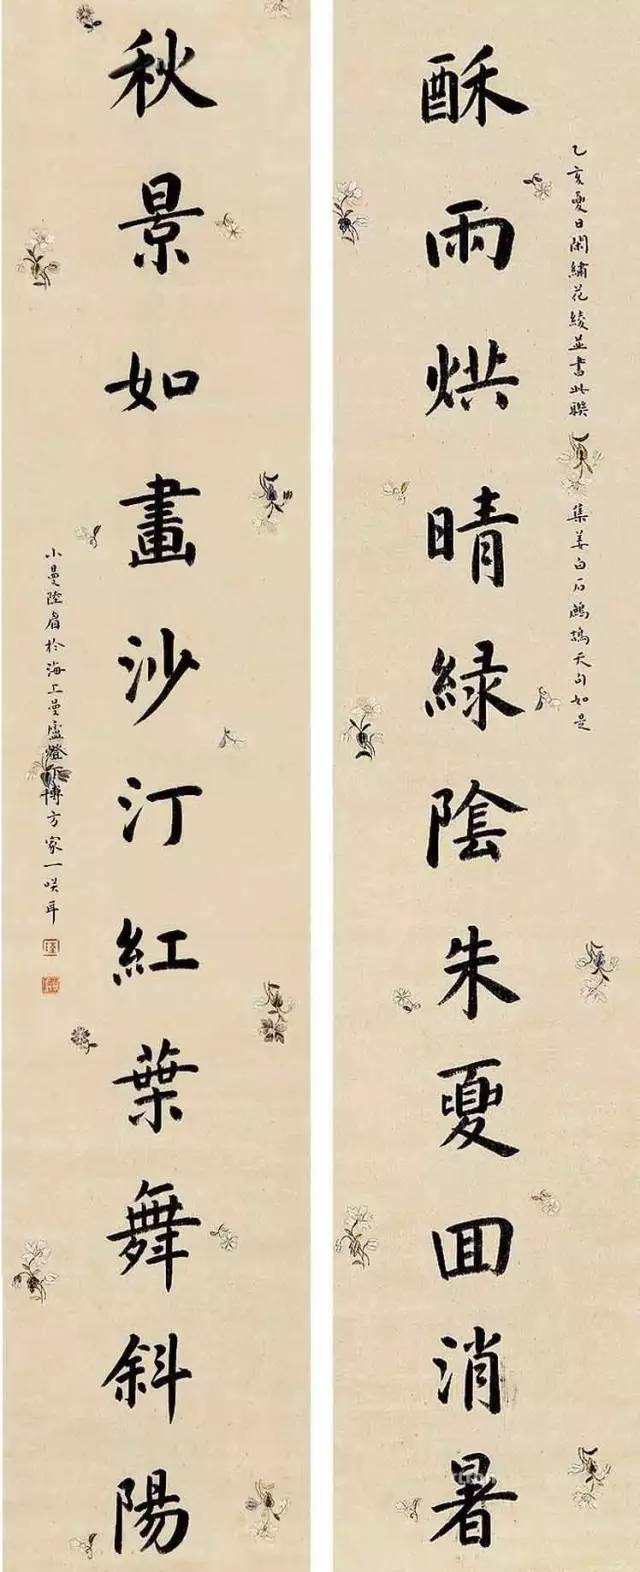 乙亥夏日閑繡花綾並書此聯 集姜白石鷓鴣天句如是
酥雨烘晴緑陰朱夏囬消暑
秋景如畫沙汀紅葉舞斜陽
小曼陸眉於海上曼廬燈下博方家一咲耳